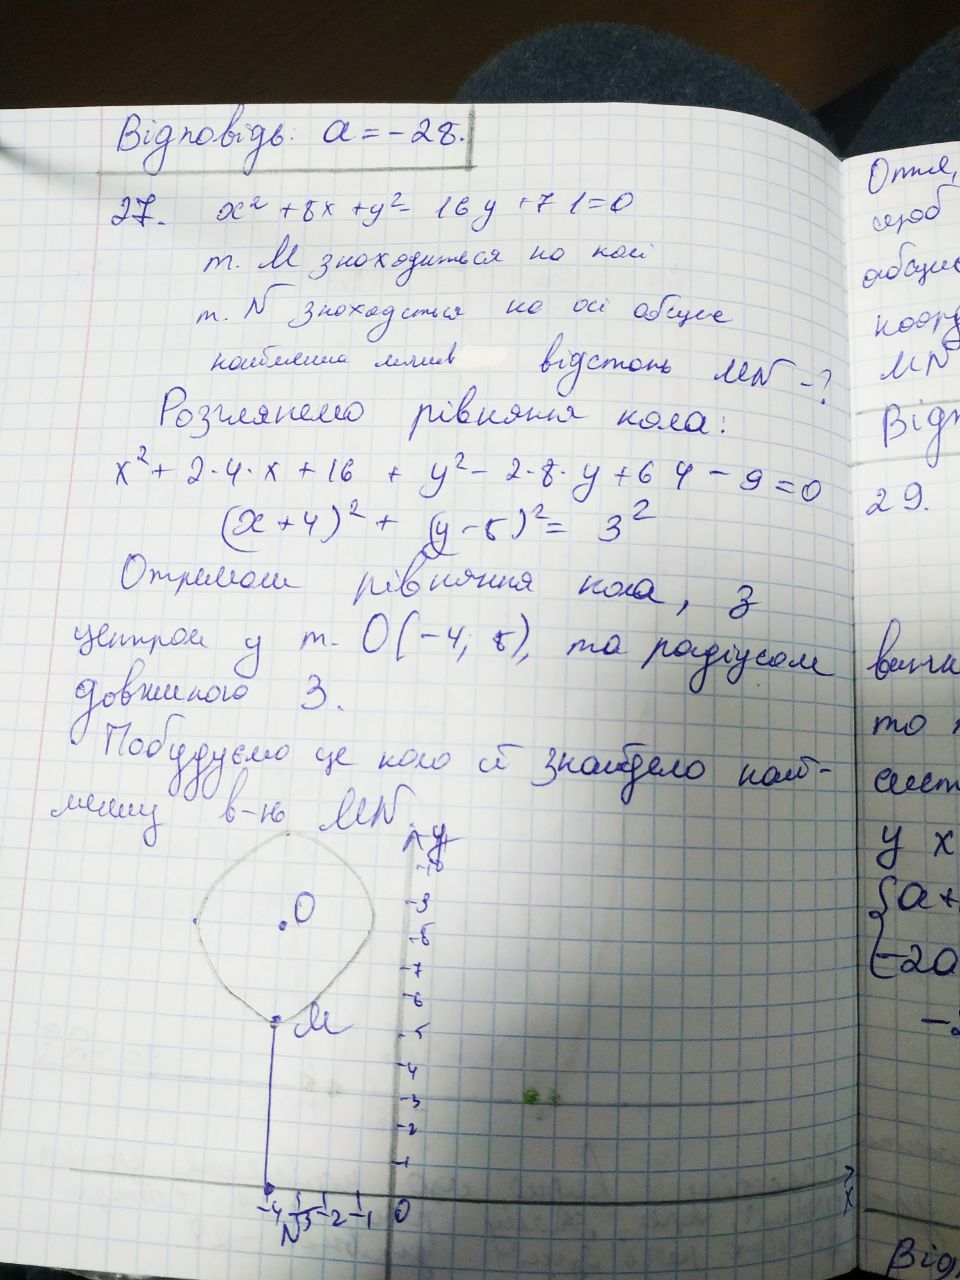 Відповідь: a = -28.
27. x² + 8x + y² - 16y + 71 = 0
т. М знаходиться на колі
т. N знаходиться на осі абсцис
відстань MN - ?
Розглянемо рівняння кола:
x² + 2·4·x + 16 + y² - 2·8·y + 64 - 9 = 0
(x+4)² + (y-8)² = 3²
Отримали рівняння кола, з
центром у т. O(-4; 8), та радіусом
довжиною 3.
Побудуємо це коло й знайдемо най-
меншу в-нь MN.
y
9
8
7
6
5
4
3
2
1
O
M
-4 -3 -2 -1 0
N
x
Отже,
абсцис
коорд
MN
Відп
29.
то
сист
у х
{a+
-2a
Від